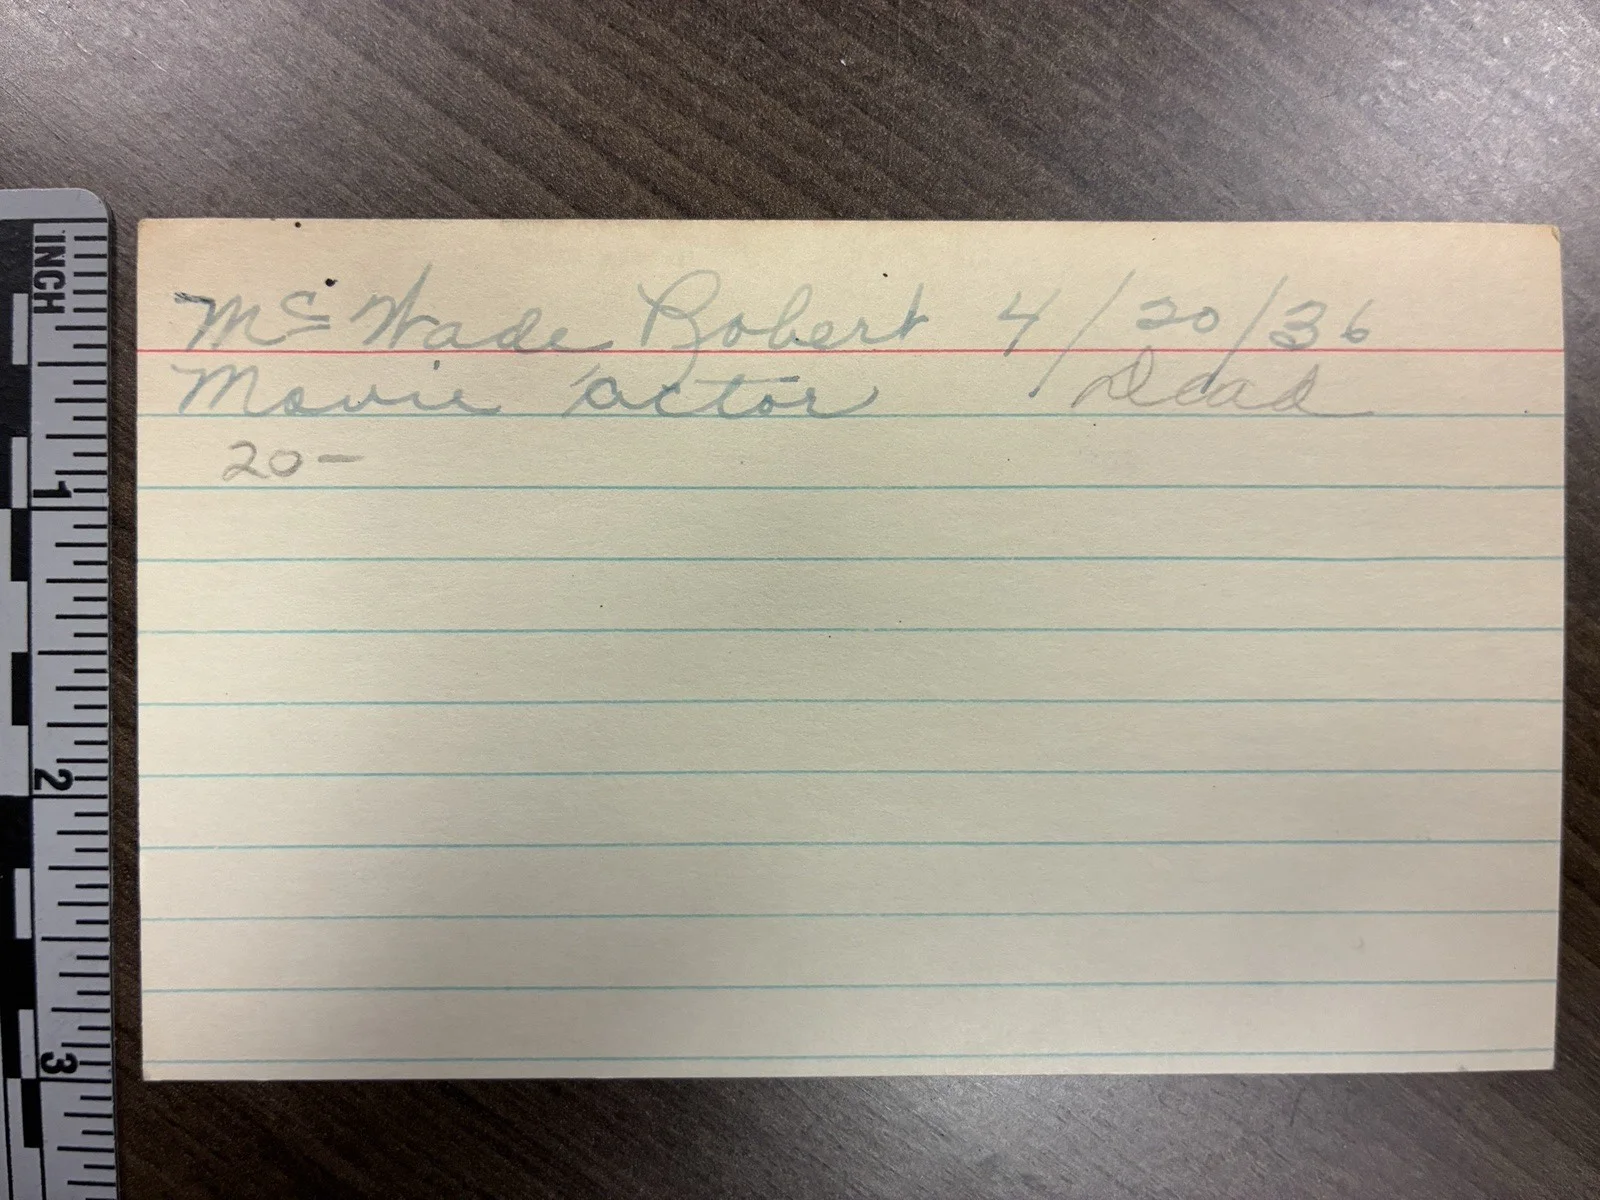 Mc Wade Robert 4/20/36
Movie actor Dead
20-
INCH
1
2
3